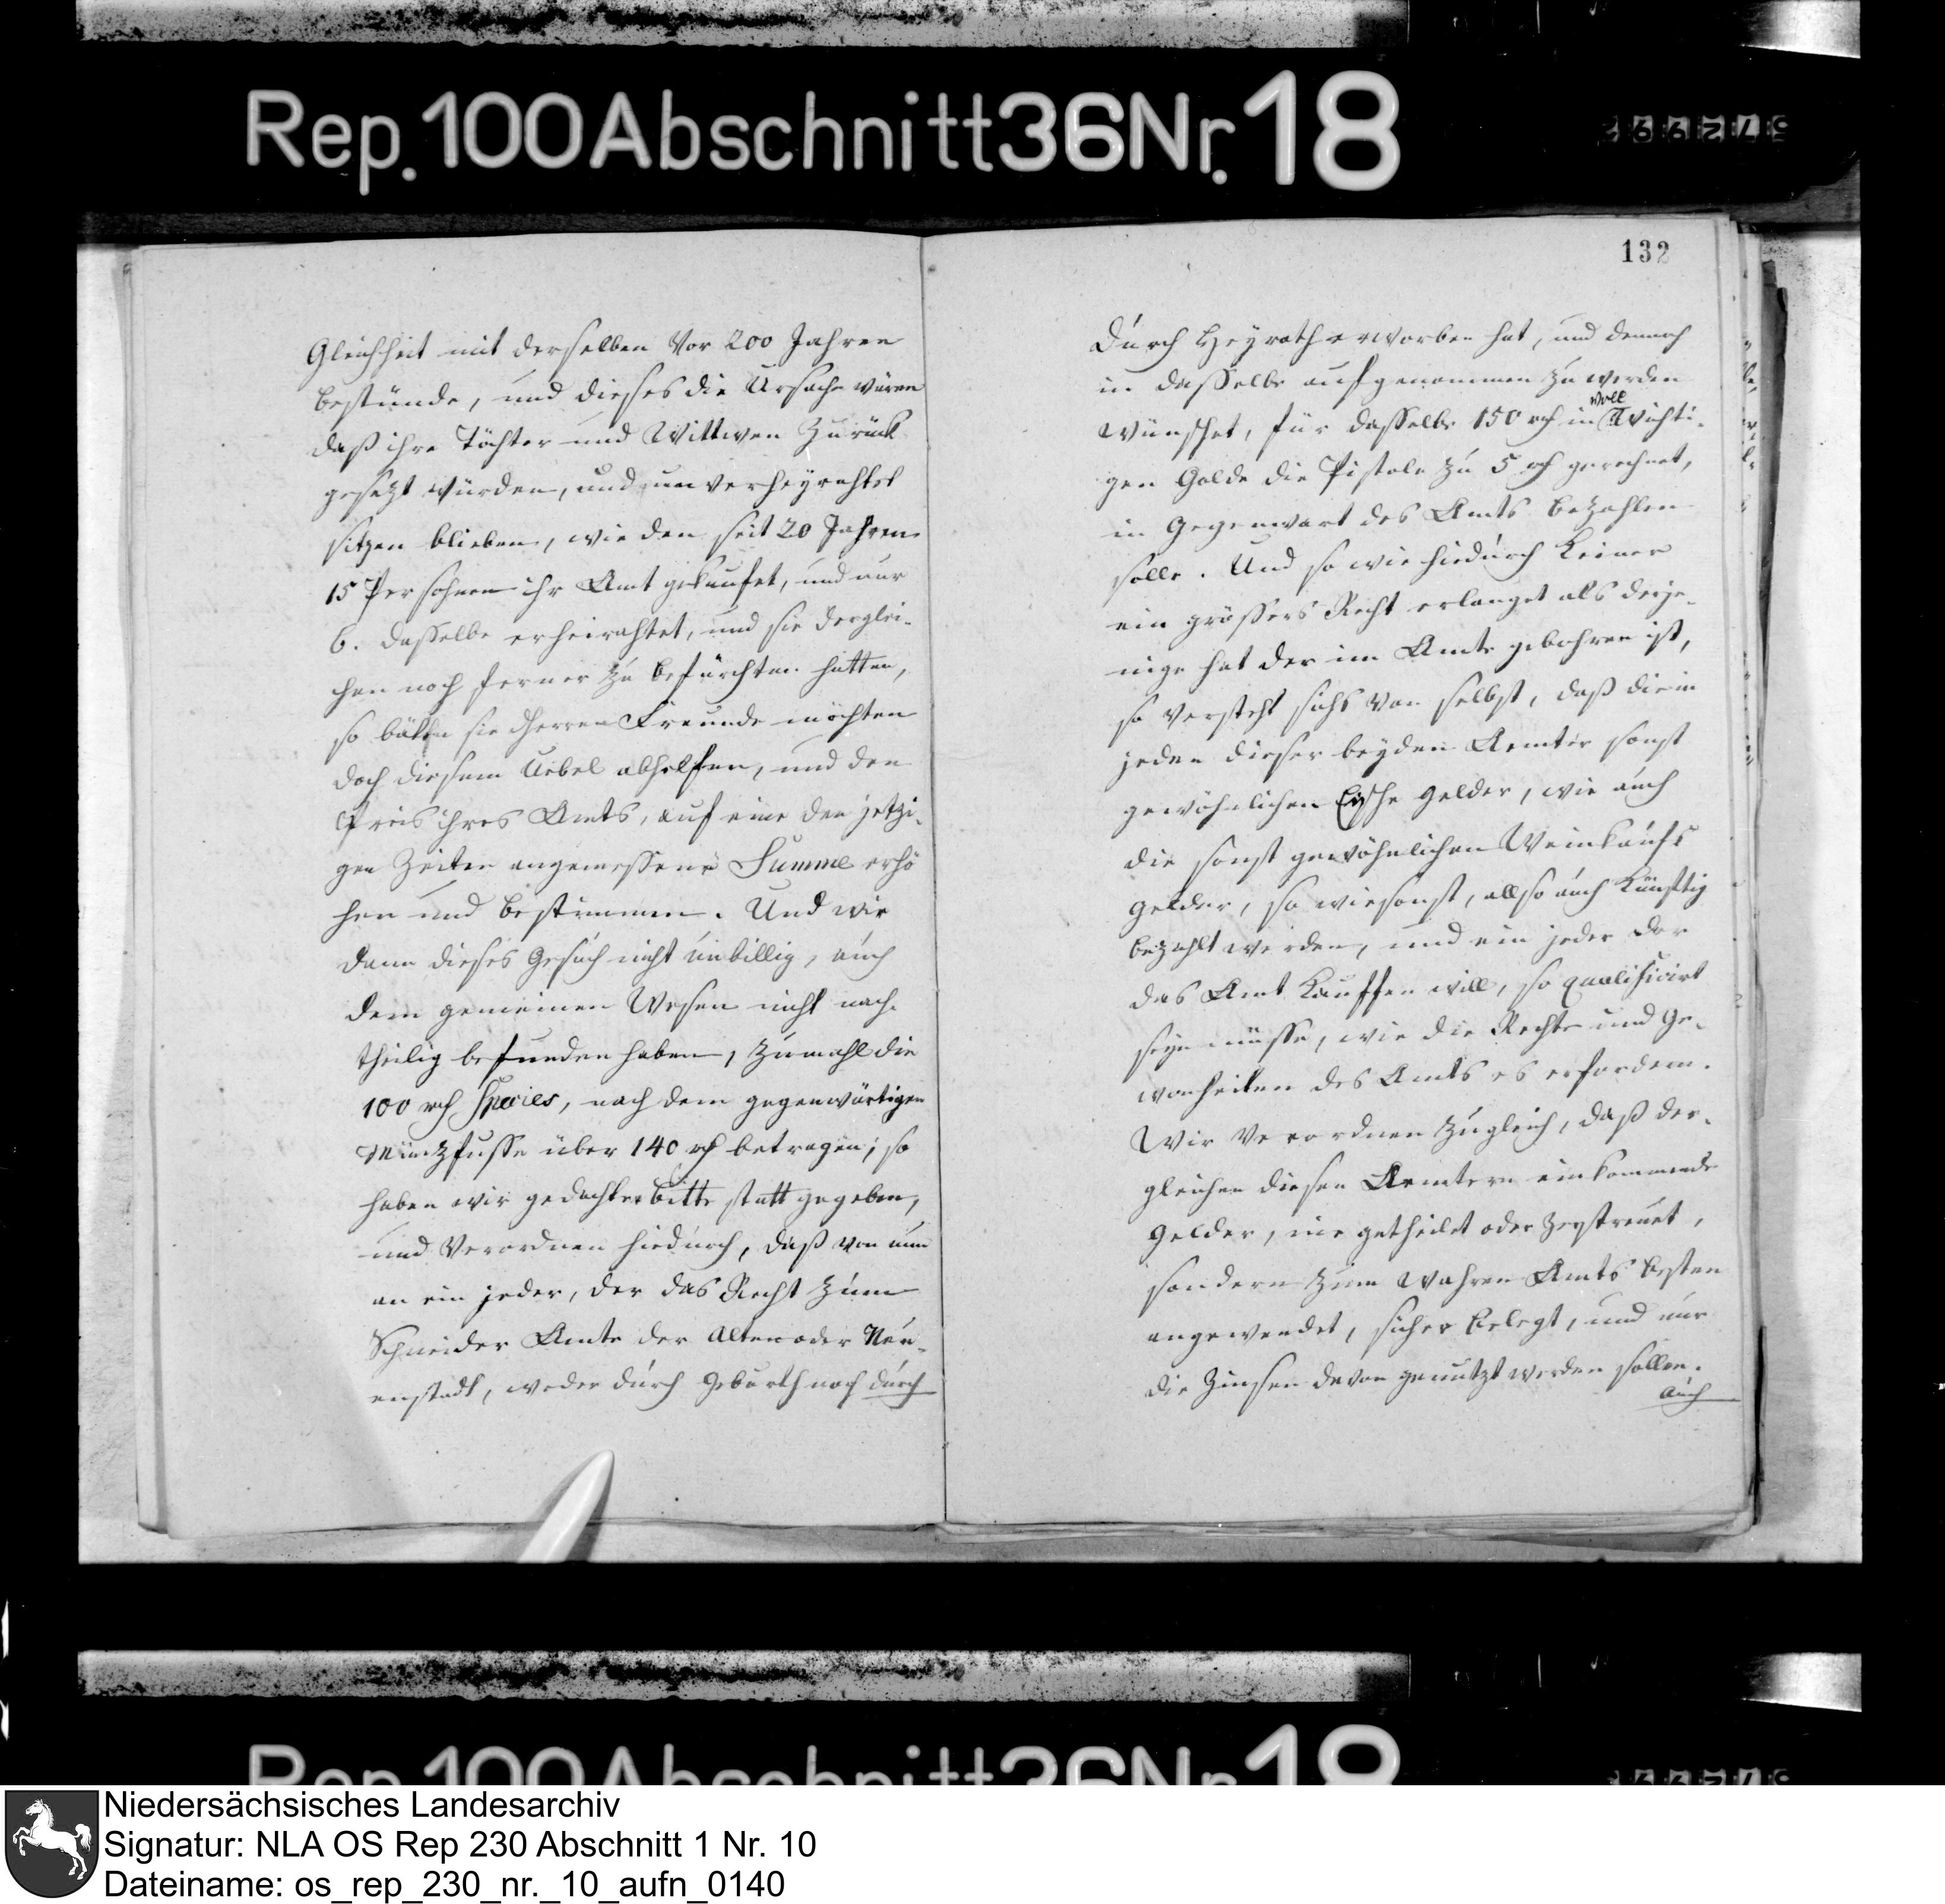 Rep. 100 Abschnitt 36 Nr. 18
Gleichheit mit derselben vor 200 Jahren
bestünde, und dieses die Ursache wären
daß ihre Töchter und Wittwen zurück
gesezt würden, und unverheyrahtet
sitzen blieben, wie den seit 20 Jahren
15 Persohnen ihr Amt gekaufet, und nur
6. dasselbe erheirahtet, und sie derglei-
chen noch ferner zu befürchten hätten,
so bäten sie Herren Freunde möchten
doch diesem Uebel abhelfen, und den
Preis ihres Amts, auf eine den jetzi-
gen Zeiten angemessene Summe erhö
hen und bestimmen. Und wir
dann dieses Gesuch nicht unbillig, auch
dem gemeinen Wesen nicht nach-
theilig befunden haben, zumahl die
100 rth Species, nach dem gegenwärtigen
Münzfusse über 140 rth betragen; so
haben wir gedachter Bitte statt gegeben,
und verordnen hiedurch, daß von nun
an ein jeder, der das Recht zum
Schneider Amte der Alten oder Neu-
enstadt, weder durch Geburth noch durch
132
durch Heyrath erworben hat, und dennoch
in dasselbe aufgenommen zu werden
wünschet, für dasselbe 150 rth in voll wichti-
gen Golde die Pistole zu 5 rth gerechnet,
in Gegenwart des Amts bezahlen
solle. Und so wie hiedurch keiner
ein grössers Recht erlanget als derje-
nige hat der im Amte gebohren ist,
so versteht sichs von selbst, daß die in
jeden dieser beyden Aemter sonst
gewöhnlichen Eische Gelder, wie auch
die sonst gewöhnlichen Weinkaufs
Gelder, so wie sonst, also auch künftig
bezahlt werden, und ein jeder der
das Amt kauffen will, so qualificirt
seyn müsse, wie die Rechte und Ge-
wonheiten des Amts es erfordern.
Wir verordnen zugleich, daß der-
gleichen diesen Aemtern einkommende
Gelder, nie getheilet oder zerstreuet,
sondern zum wahren Amts besten
angewendet, sicher belegt, und nur
die Zinsen davon genutzt werden sollen.
auch
Rep. 100 Abschnitt 36 Nr. 18
Niedersächsisches Landesarchiv
Signatur: NLA OS Rep 230 Abschnitt 1 Nr. 10
Dateiname: os_rep_230_nr._10_aufn_0140